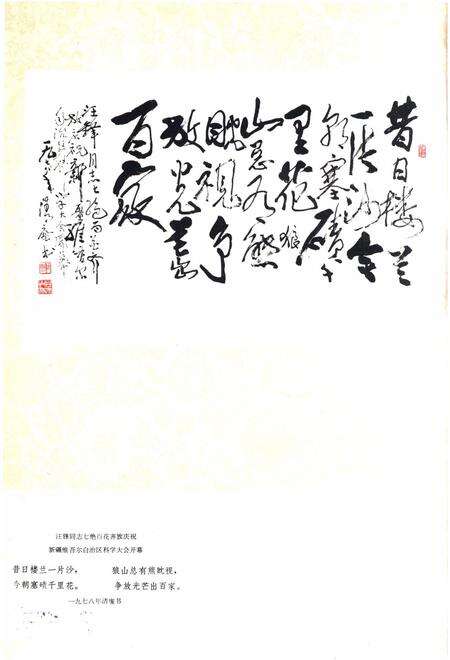 昔日楼兰
一片沙今
朝塞碛千
里花狼
山总有熊
眈视争
放光芒出
百家
汪锋同志七绝百花齐
放庆祝新疆维吾尔
汪锋同志七绝百花齐放庆祝
新疆维吾尔自治区科学大会开幕
昔日楼兰一片沙，
今朝塞碛千里花。
狼山总有熊眈视，
争放光芒出百家。
一九七八年 书